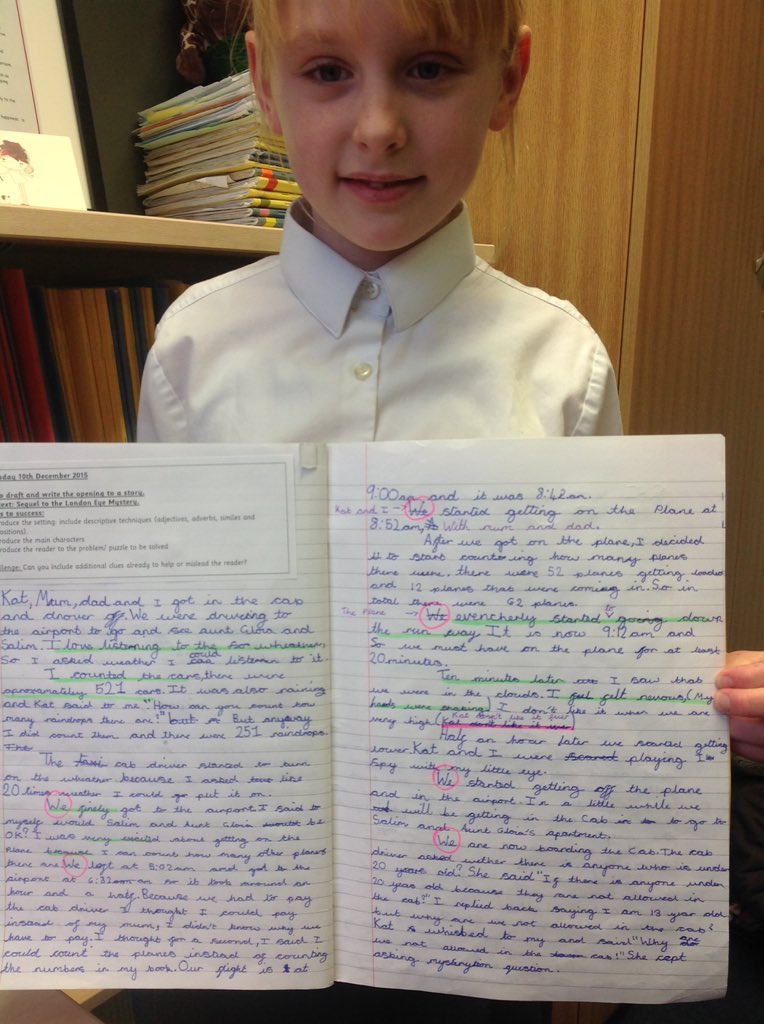 day 10th December 2015
o draft and write the opening to a story.
text: Sequel to the London Eye Mystery.
s to success:
roduce the setting: include descriptive techniques (adjectives, adverbs, similes and
ositions)
roduce the main characters
roduce the reader to the problem/ puzzle to be solved
llenge: Can you include additional clues already to help or mislead the reader?
Kat, Mum, dad and I got in the cab
and drover off. We were driveing to
the airport to go and see aunt Gloria and
Salim. I love listening to the wheather,
So I asked weather I could listen to it.
I counted the cars, there were
aproxamatley 521 cars. It was also raining
and Kat said to me "How can you count how
many raindrops there are!" But anyway
I did count them and there were 251 raindrops.
The
The taxi cab driver started to turn
on the wheather because I asked like
20 times weather I could go put it on.
We finely got to the airport. I said to
myself would Salim and Aunt Gloia be
ok? I was very excited about getting on the
plane because I can count how many other planes
there are. We left at 5:02am and got to the
airport at 6:32am so it took around an
hour and a half. Because we had to pay
the cab driver I thought I could pay
instead of my mum, I didn't know why we
have to pay. I thought for a second, I said I
could count the planes instead of counting
the numbers in my book. Our flight is at
9:00am and it was 8:42am.
Kat and I → We started getting on the Plane at
8:52am, With mum and dad.
After we got on the plane, I decided
to start counting how many planes
there were, there were 52 planes getting loaded
and 12 planes that were coming in. So in
total there were 62 planes.
The Plane → We evencherly started to going down
the run way. It is now 9:12am and
So we must have on the plane for at least
20 minutes.
Ten minutes later I saw that
we were in the clouds. I felt nervous, (My
hands were shaking) I don't like it when we are
very high (Kat don't like it
Kat don't like it
Half an hour later we started getting
lower. Kat and I were playing I
Spy with my little eye.
We started getting off the plane
and in the airport. In a little while we
will be getting in the Cab to go to
Salim and Aunt Gloia's apartment.
We are now boarding the Cab. The cab
driver asked wether there is anyone who is under
20 years old? She said "If there is anyone under
20 yeas old because they are not allowed in
the cab?" I replied back saying I am 13 year old
but why are we not allowed in the cab?
Kat is whisbed to my and said "Why are
we not allowed in the cab!" She cept
asking question.